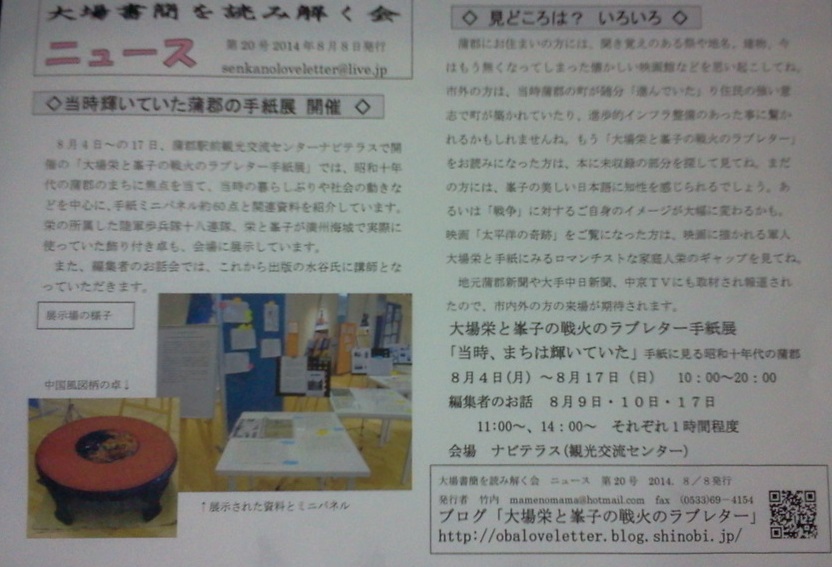 大場書簡を読み解く会
ニュース
第20号2014年8月8日発行
senkanoloveletter@live.jp
◇当時輝いていた蒲郡の手紙展 開催 ◇
8月4日~の17日、蒲郡駅前観光交流センターナビテラスで開
催の「大場栄と峯子の戦火のラブレター手紙展」では、昭和十年
代の蒲郡のまちに焦点を当て、当時の暮らしぶりや社会の動きな
どを中心に、手紙ミニパネル約60点と関連資料を紹介しています。
栄の所属した陸軍歩兵隊十八連隊、栄と峯子が廣州海城で実際に
使っていた飾り付き卓も、会場に展示しています。
また、編集者のお話会では、これから出版の水谷氏に講師とな
っていただきます。
展示場の様子
中国風図柄の卓↓
↑展示された資料とミニパネル
◇ 見どころは? いろいろ ◇
蒲郡にお住まいの方には、聞き覚えのある祭や地名、建物、今
はもう無くなってしまった懐かしい映画館などを思い起こしてね。
市外の方は、当時蒲郡の町が随分「進んでいた」り住民の強い意
志で町が築かれていたり、進歩的インフラ整備のあった事に驚か
れるかもしれませんね。もう「大場栄と峯子の戦火のラブレター」
をお読みになった方は、本に未収録の部分を探して見てね。まだ
の方には、峯子の美しい日本語に知性を感じられるでしょう。あ
るいは「戦争」に対するご自身のイメージが大幅に変わるかも。
映画「太平洋の奇跡」をご覧になった方は、映画に描かれる軍人
大場栄と手紙にみるロマンチストな家庭人栄のギャップを見てね。
地元蒲郡新聞や大手中日新聞、中京TVにも取材され報道され
たので、市内外の方の来場が期待されます。
大場栄と峯子の戦火のラブレター手紙展
「当時、まちは輝いていた」手紙に見る昭和十年代の蒲郡
8月4日(月)~8月17日(日) 10:00~20:00
編集者のお話 8月9日・10日・17日
11:00~、14:00~ それぞれ1時間程度
会場 ナビテラス(観光交流センター)
大場書簡を読み解く会 ニュース 第20号 2014. 8/8発行
発行者 竹内 mamenomama@hotmail.com fax (0533)69-4154
ブログ「大場栄と峯子の戦火のラブレター」
http://obaloveletter.blog.shinobi.jp/